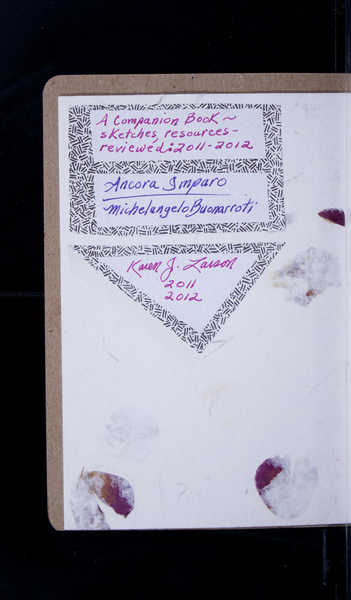 A Companion Book ~
sketches, resources -
reviewed: 2011 - 2012
Ancora Imparo
Michelangelo Buonarroti
Karen J. Larson
2011
2012